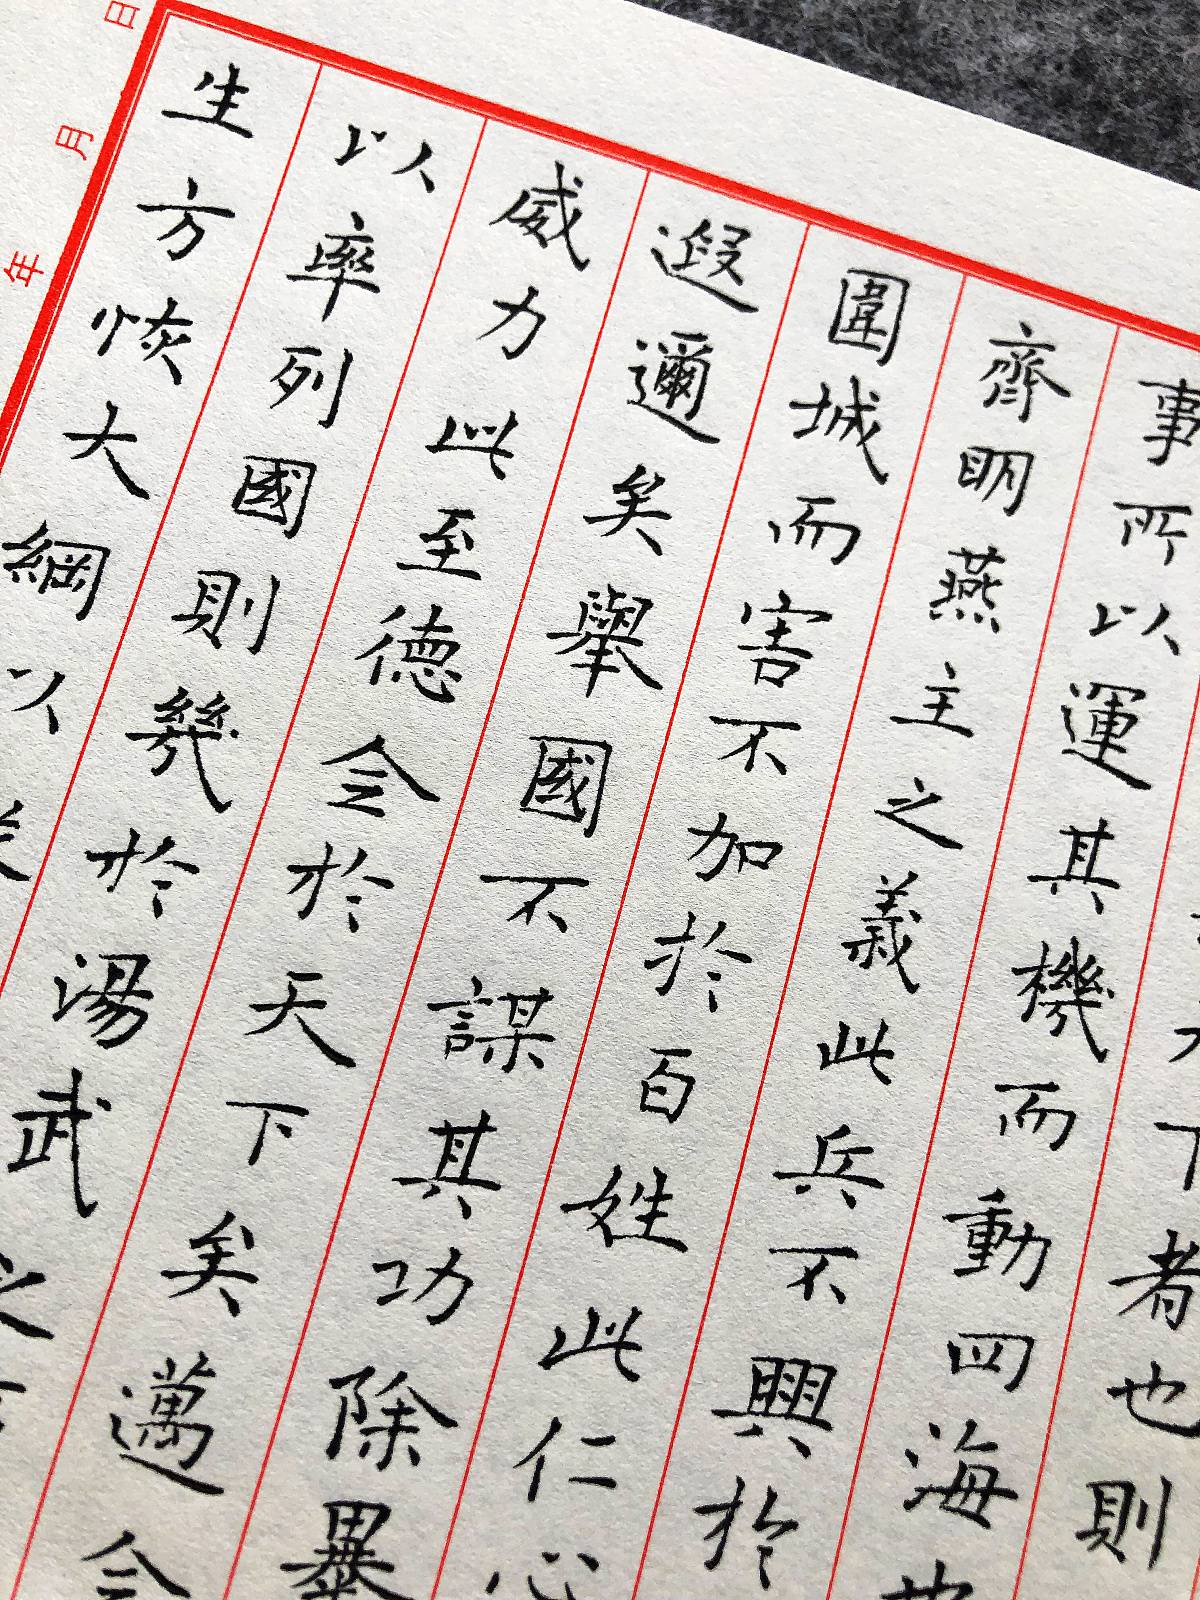 下者也則
事所以運其機而動四海也
齊明燕主之義此兵不興於
圍城而害不加於百姓此仁心
遐邇矣舉國不謀其功除暴
威力此至德全於天下矣邁全
以率列國則幾於湯武之
生方恢大綱以
日
月
年